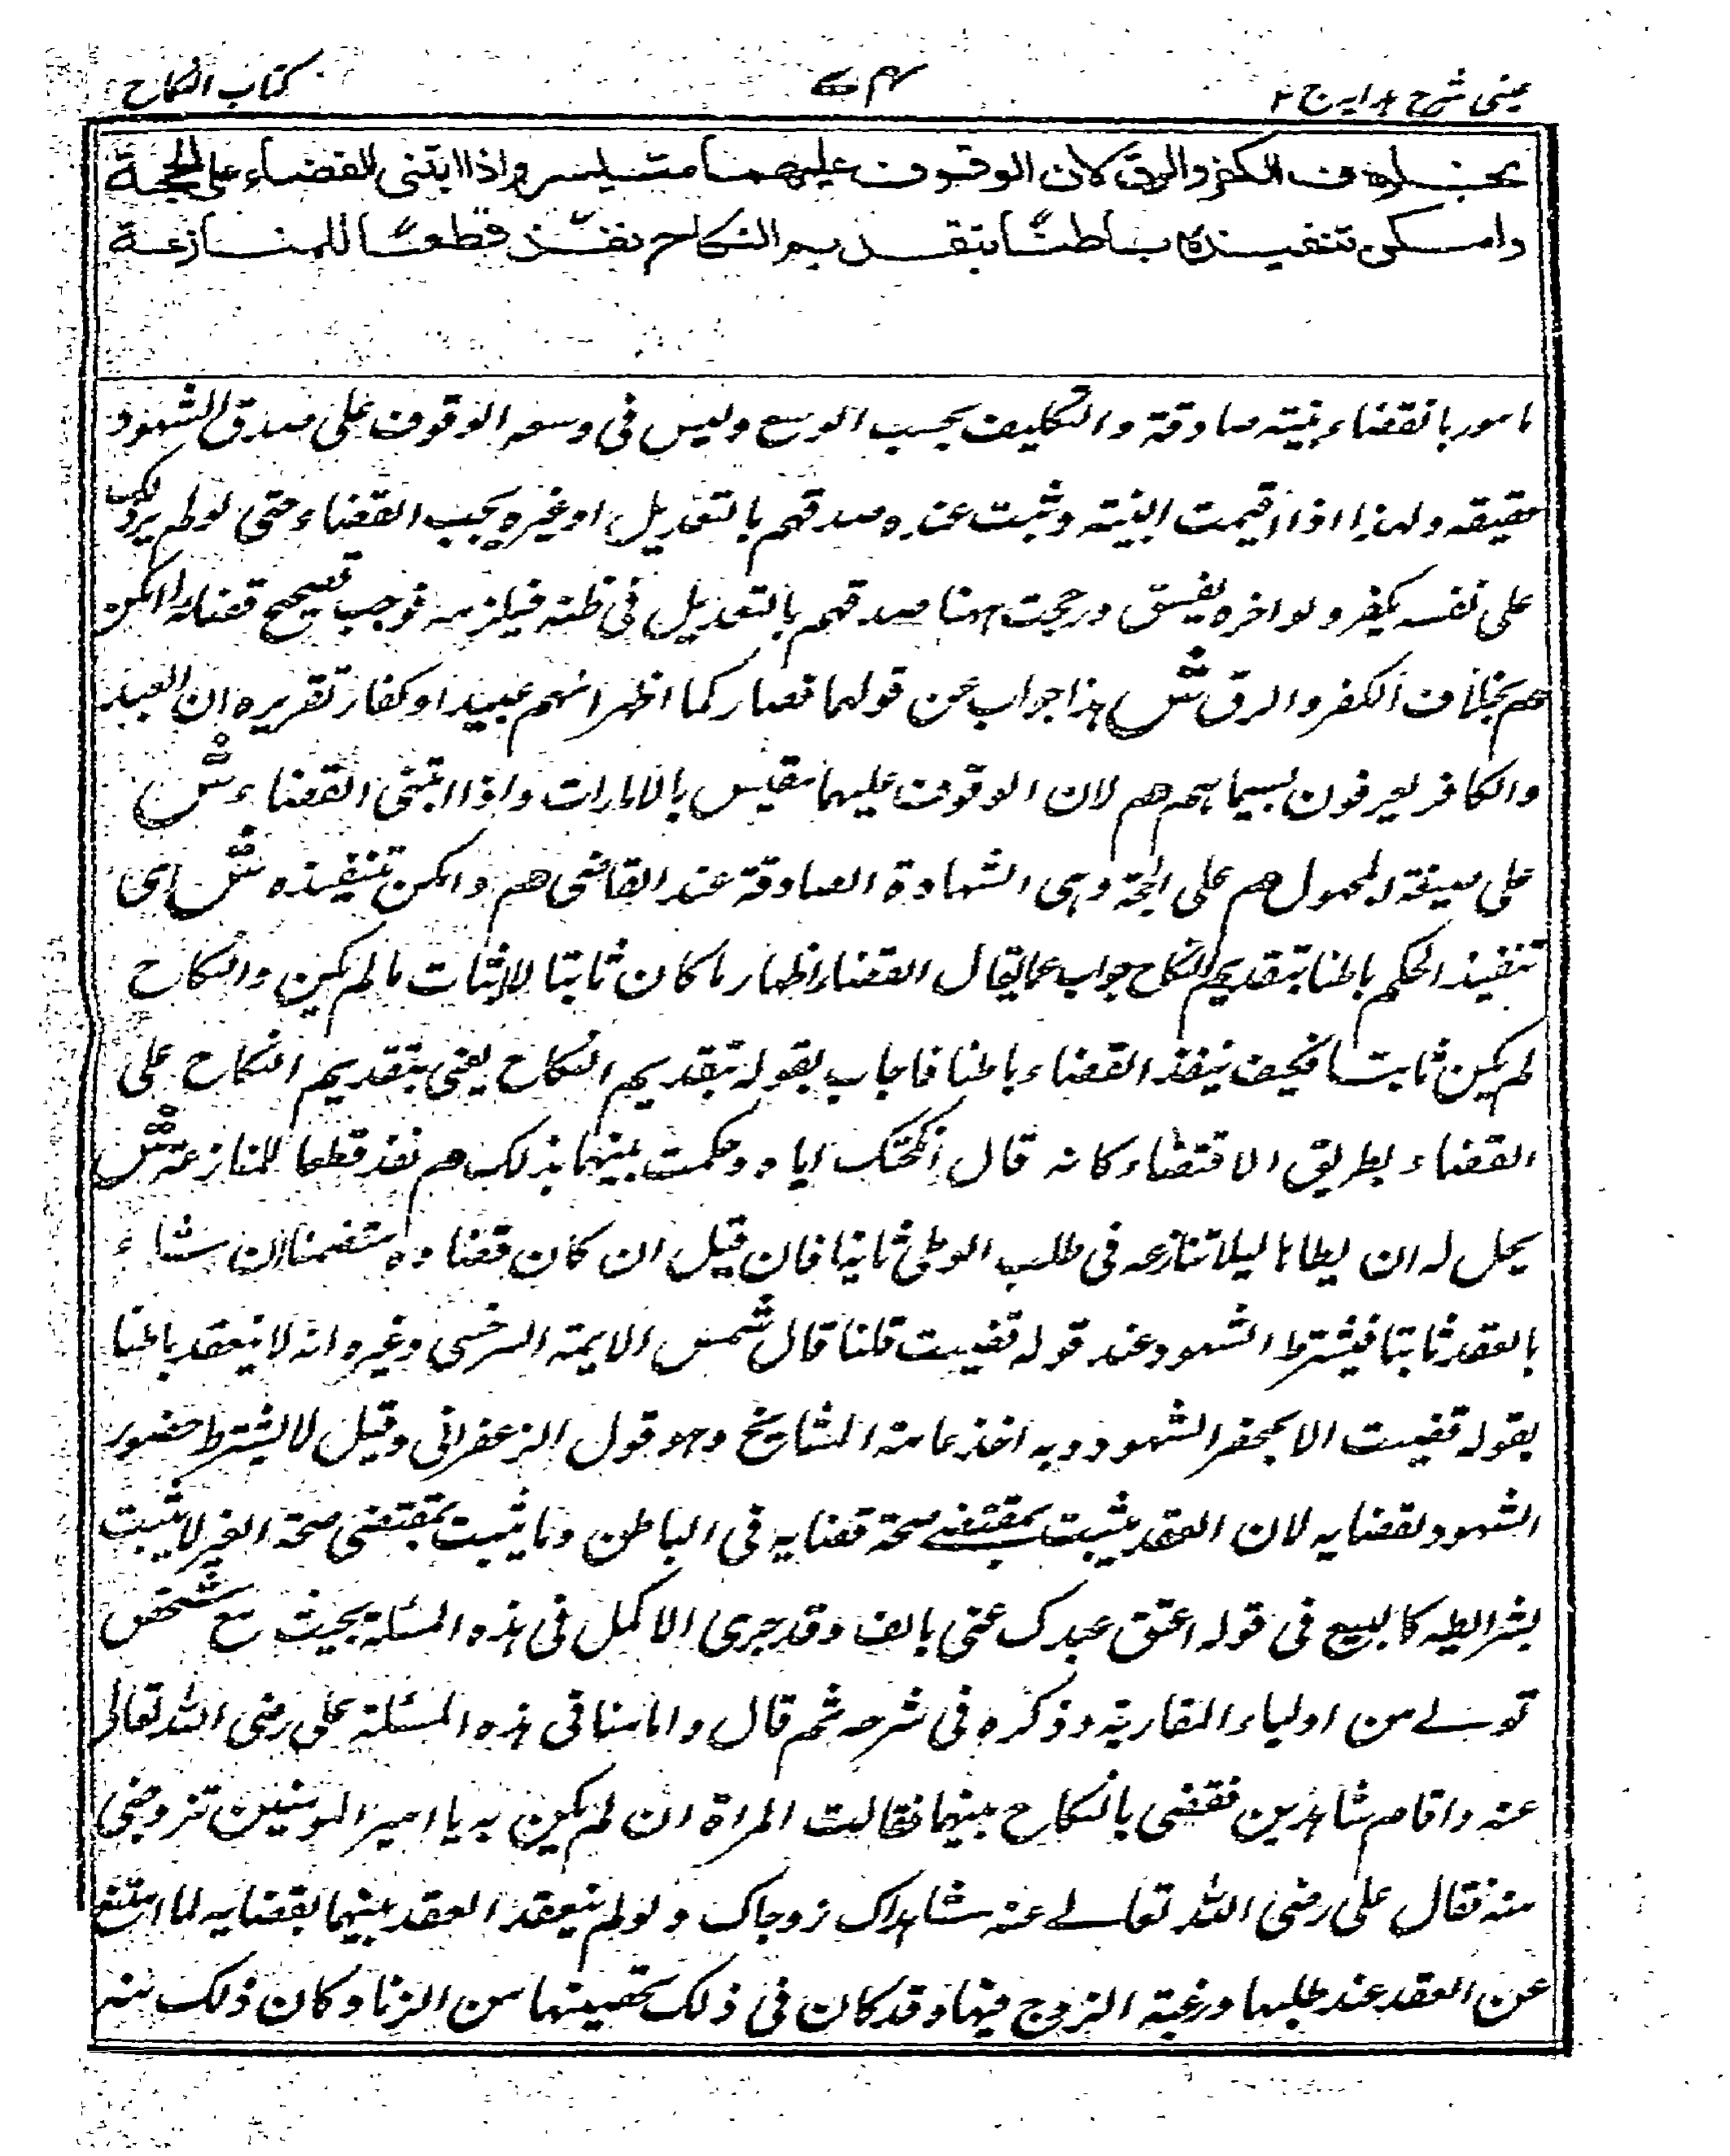 عینی شرح هدایه ج ۲
۷۴
کتاب النکاح
بخلاف الكفر والرق لان الوقوف عليهما متيسر واذا ابتنى القضاء على الحجة
وامكن تنفيذه باطنًا بتقديم النكاح نفذ قطعًا للمنازعة
مامور بالقضاء ببينة صادقة والتكليف بحسب الوسع وليس فى وسعه الوقوف على صدق الشهود
حقيقة ولهذا اذا اقيمت البينة وثبت عنده صدقهم بالتعديل او غيره يجب القضاء حتى لو لم ير ذلك
على نفسه يكفر ولو اخره يفسق ورجحت ههنا صدقهم بالتعديل فى ظنه فيلزمه فوجب تصحيح قضائه ما امكن
هم بخلاف الكفر والرق ش هذا جواب عن قولهما فصار كما اظهر انهم عبيد او كفار تقريره ان العبد
والكافر يعرفون بسيماهم هم لان الوقوف عليهما متيسر بالامارات واذا ابتنى القضاء ش
على صيغة المجهول هم على الحجة وهى الشهادة الصادقة عند القاضى هم وامكن تنفيذه ش اى
تنفيذ الحكم باطنا بتقديم النكاح جواب عما يقال القضاء اظهار ما كان ثابتا لا اثبات ما لم يكن والنكاح
لم يكن ثابتا فكيف ينفذ القضاء باطنا فاجاب بقوله بتقديم النكاح يعنى بتقديم النكاح على
القضاء بطريق الاقتضاء كانه قال انكحتك اياه وحكمت بينهما بذلك هم نفذ قطعا للمنازعة ش
يحل له ان يطاها ليلا تنازعه فى طلب الوطى ثانيا فان قيل ان كان قضاوه متضمنا انشاء
بالعقد ثابتا فيشترط الشهود عند قوله قضيت قلنا قال شمس الايمة السرخسى وغيره انه لا ينعقد باطنا
بقوله قضيت الا بمحضر الشهود وبه اخذ عامة المشايخ وهو قول الزعفرانى وقيل لا يشترط حضور
الشهود لقضايه لان العقد يثبت بمقتضى صحة قضايه فى الباطن وما يثبت بمقتضى صحة الغير لا يثبت
بشرايطه كالبيع فى قوله اعتق عبدك عنى بالف وقد جرى الاكمل فى هذه المسئلة بحيث مع شخص
تولى من اولياء المغاربة وذكره فى شرحه ثم قال وامامنا فى هذه المسئلة على رضى الله تعالى
عنه واقام شاهدين فقضى بالنكاح بينهما فقالت المراة ان لم يكن به يا امير المومنين تزوجنى
منه فقال على رضى الله تعالى عنه شاهداك زوجاك ولو لم ينعقد العقد بينهما بقضايه لما امتنع
عن العقد عند طلبها ورغبة الزوج فيها وقد كان فى ذلك تحصينها من الزنا وكان ذلك منه